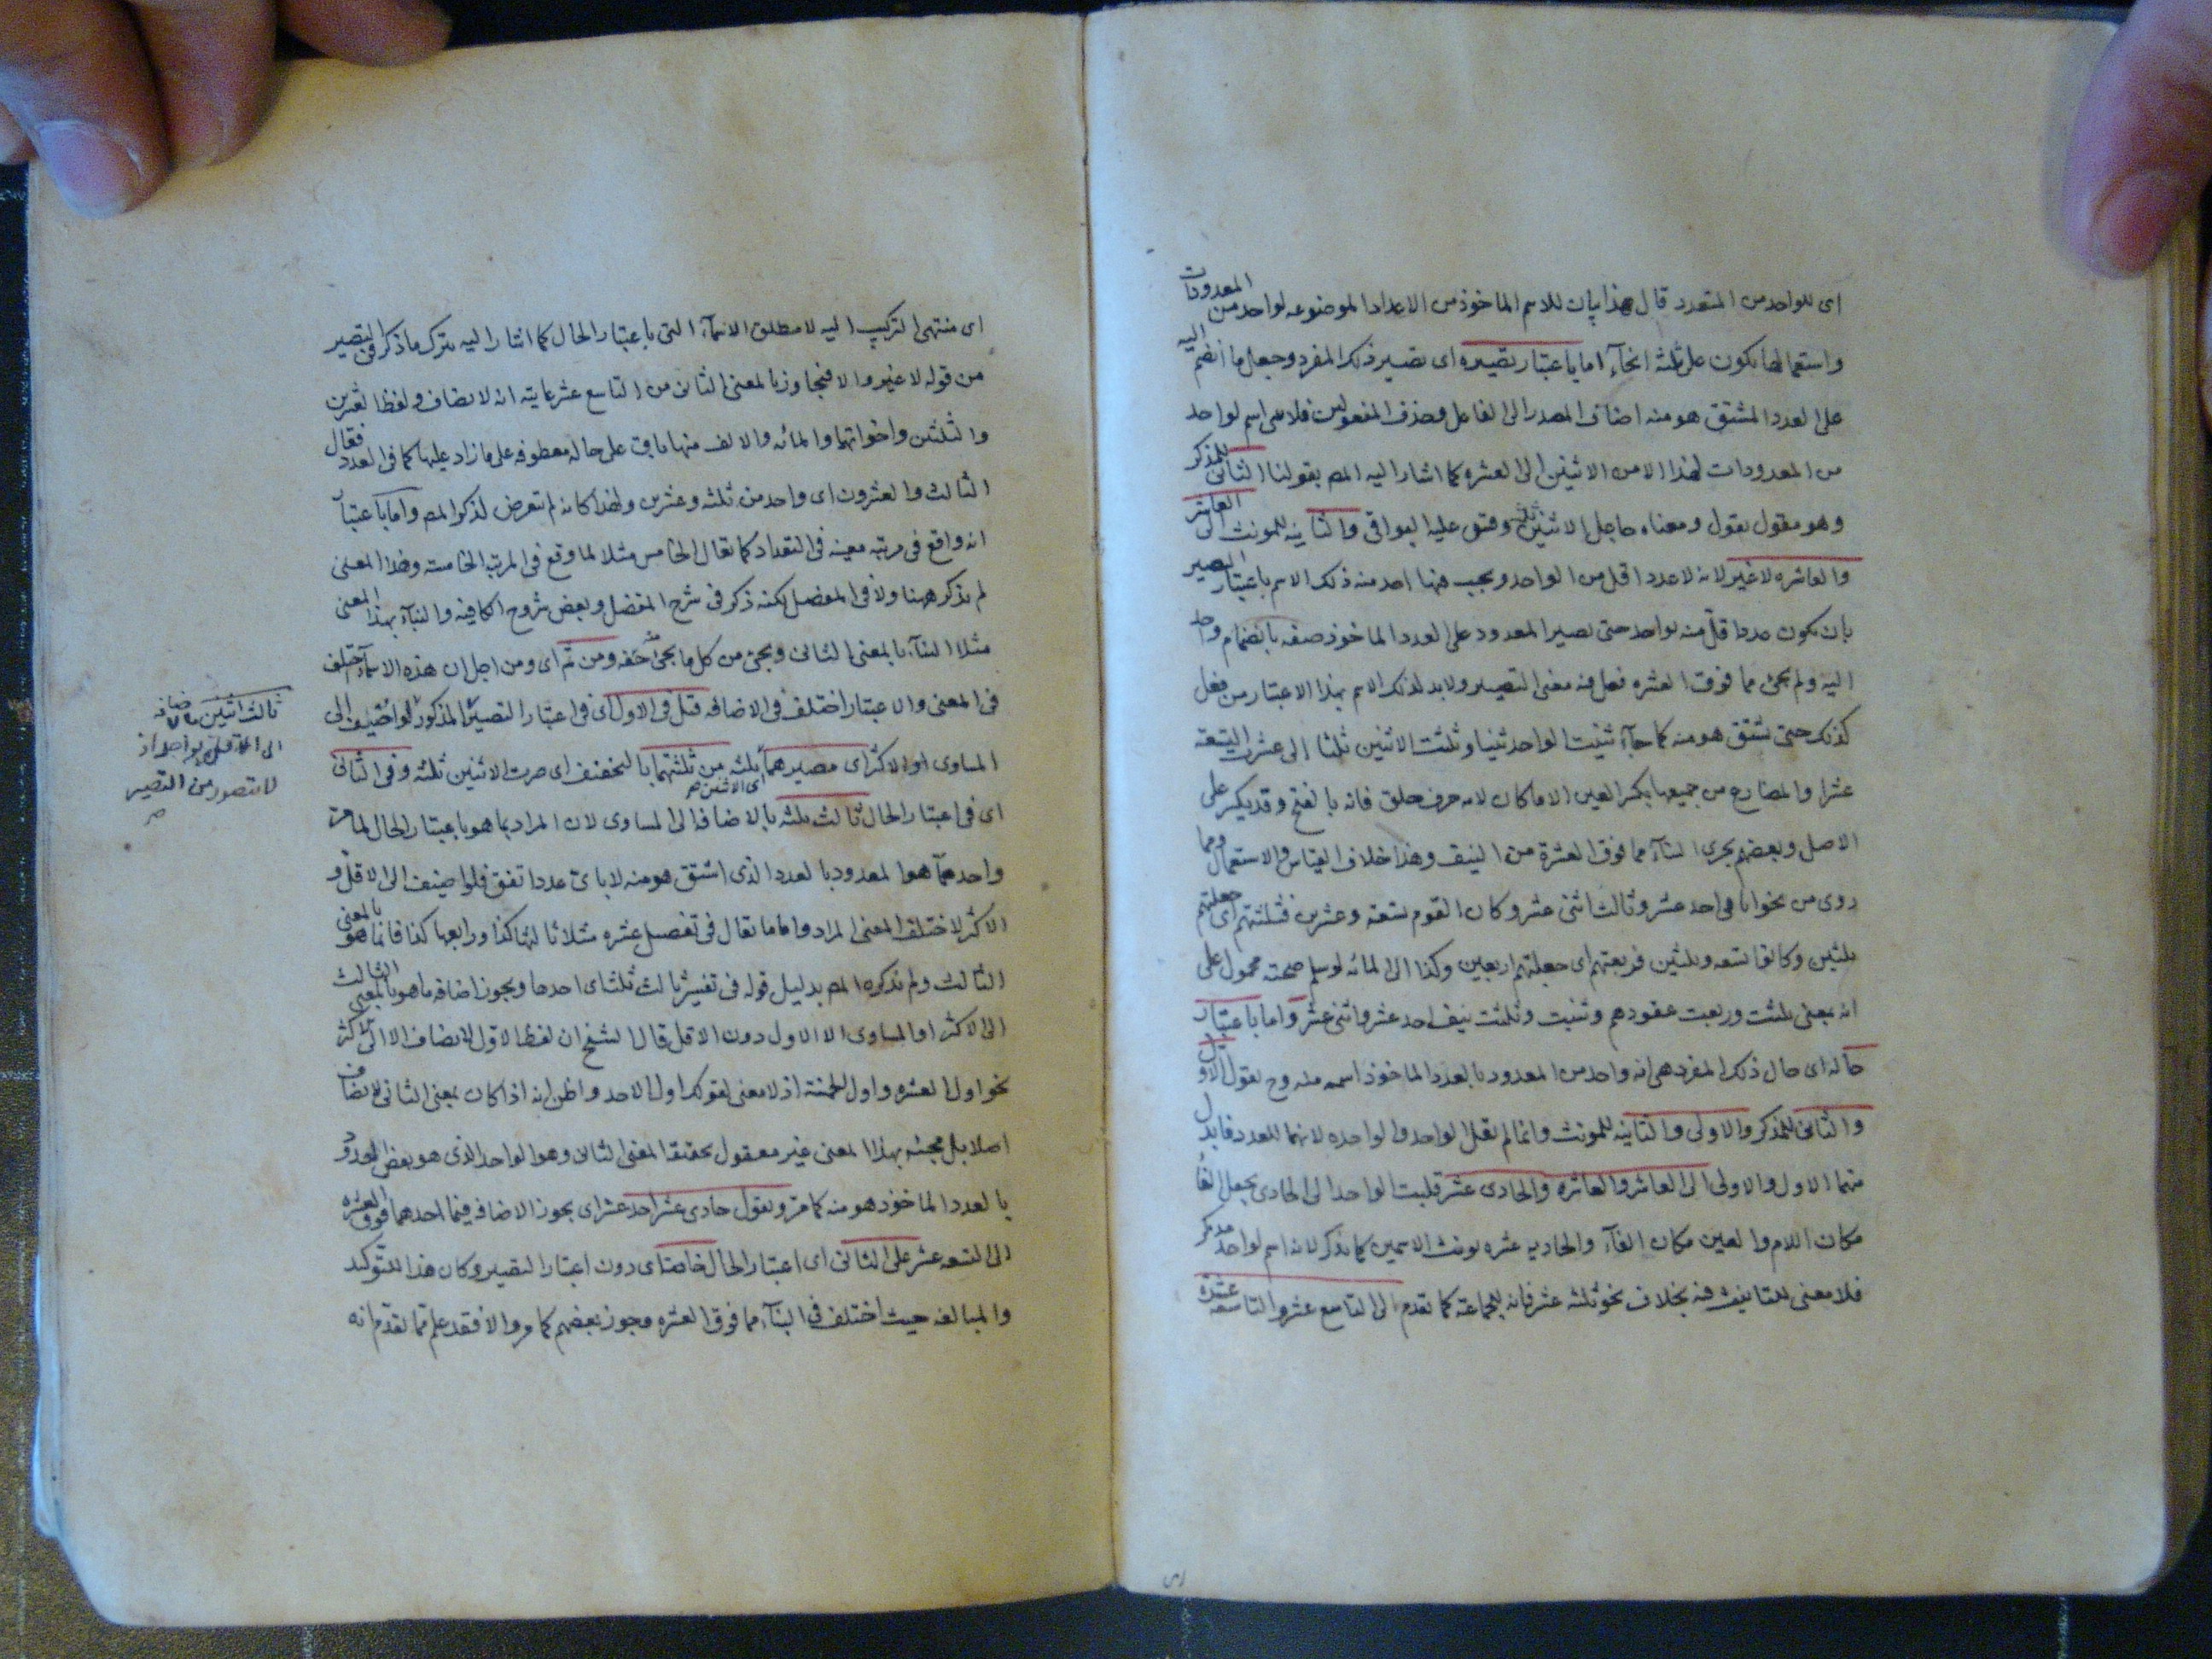 اى للواحد من المتعدد قال هذا بيان للاسم الماخوذ من الاعداد الموضوعه لواحد من المعدودات
واستعمالها يكون على ثلثه انحآء اما باعتبار تصييره اى تصيير ذلك المفرد وجعل ما انضم اليه
على العدد المشتق هو منه اضافه المصدر الى الفاعل وحذف المفعولين فلا اسم لواحد
من المعدودات لهذا الا من الاثنين الى العشره كما اشار اليه المص بقولنا الثانى للمذكر
وهو مقول يقول ومعناه جاعل الاثنين ثلثه وقس عليه البواقى والثانيه للمونث الى العاشر
والعاشره لا غير لانه لا عدد اقل من الواحد ويجب هنا اخذ منه ذلك الاسم باعتبار التصيير
بان يكون عددا اقل منه بواحد حتى يصير المعدود على العدد الماخوذ صفه بانضمام واحد
اليه ولم يجئ مما فوق العشره فعل فيه معنى التصيير ولا بد لذلك الاسم بهذا الاعتبار من فعل
كذلك حتى يشتق هو منه كما جآء ثنيت الواحد ثنيا وثلثت الاثنين ثلثا الى عشرت التسعه
عشرا والمضارع من جميعها بكسر العين الا ما كان لامه حرف حلق فانه بالفتح وقد يكسر على
الاصل وبعضهم يجرى البنآء مما فوق العشرة من النيف وهذا خلاف القياس والاستعمال ومما
روى من نحو انا فى احد عشر وثالث اثنى عشر وكان القوم تسعة وعشرين فثلثتهم اى جعلتهم
ثلثين وكانوا تسعه وثلثين فربعتهم اى جعلتهم اربعين وكذا الى المائه لو سلم صحته محمول على
انه بمعنى ثلثت وربعت عقودهم وثنيت وثلثت نيف احد عشر واثنى عشر واما باعتبار
حاله اى حال ذلك المفرد هى انه واحد من المعدود بالعدد الماخوذ اسمه منه وح يقول الاول
والثانى للمذكر والاولى والثانيه للمونث وانما لم يقل الواحد والواحده لانهما للعدد فابدل
منهما الاول والاولى الى العاشر والعاشره والحادى عشر قلبت الواحد الى الحادى بجعل الفآ
مكان اللام والعين مكان الفآء والحاديه عشره بونث الاسمين كما يذكر لانه اسم لواحد مذكر
فلا معنى للتانيث فيه بخلاف نحو ثلثه عشر فانه للجماعة كما تقدم الى التاسع عشر والتاسعه عشرة
اى منتهى التركيب اليه لا مطلق الاسمآء التى باعتبار الحال كما اشار اليه بترك ما ذكر فى التصيير
من قوله لا غير والا فتجاوز بالمعنى الثانى من التاسع عشر غايته انه لا يضاف ولفظ العشرين
والثلثين واخواتهما والمائه والالف منها باق على حاله معطوفه على ما زاد عليها كما فى العدد فيقال
الثالث والعشرون اى واحد من ثلثه وعشرين ولهذا كانه لم يتعرض لذكر المص واما باعتبار
انه واقع فى مرتبه معينه فى التعداد كما يقال الخامس مثلا لما وقع فى المرتبه الخامسه وهذا المعنى
لم يذكر ههنا ولا فى المفصل لكنه ذكر فى شرح المفصل وبعض شروح الكافيه والبنآء بهذا المعنى
مثل البنآء بالمعنى الثانى ويجئ من كل ما يجئ منه ومن ثم اى ومن اجل ان هذه الاسمآء تختلف
فى المعنى والاعتبار اختلف فى الاضافه قيل فى الاول اى فى اعتبار التصيير المذكور لو اضيف الى
المساوى او الاكثر اى مصيرهما ثلثه من ثلثتهما بالتخفيف اى صرت الاثنين ثلثه وفى الثانى
اى الاثنين صح
اى فى اعتبار الحال ثالث ثلثه بالاضافه الى المساوى لان المراد بما هو باعتبار الحال لما مر
واحد مما هو المعدود بالعدد الذى اشتق هو منه لا باى عدد اتفق فلو اضيف الى الاقل و
الاكثر لاختلف المعنى المراد واما ما يقال فى تفصيل عشره مثلا ثالثها كذا ورابعها كذا فانما هو بالمعنى
الثالث ولم يذكره المص بدليل قوله فى تفسير ثالث ثلثه اى احدها ويجوز اضافه ما هو بالمعنى الثالث
الى الاكثر او المساوى الا الاول دون الاقل قال الشيخ ان لفظ الاول لا يضاف الا الى الاكثر
نحو اول العشره واول الخمسه اذ لا معنى لقولك اول الاحد واظن انه اذا كان بمعنى الثانى لا يضاف
اصلا بل مجيئه بهذا المعنى غير معقول بحقيقه المعنى الثانى وهو الواحد الذى هو بعض المعدود
بالعدد الماخوذ هو منه كما مر ويقول حادى عشر احد عشر اى يجوز الاضافه فيما احدهما فوق العشره
الى التسعه عشر على الثانى اى اعتبار الحال خاصة اى دون اعتبار التصيير وكان هذا للتوكيد
والمبالغه حيث اختلف فى البنآء مما فوق العشره وجوز بعضهم كما مر والا فقد علم مما تقدم انه
ثالث اثنين اضافه
الى الاقل بواحد اذ
لا يتصور من التصيير
صح